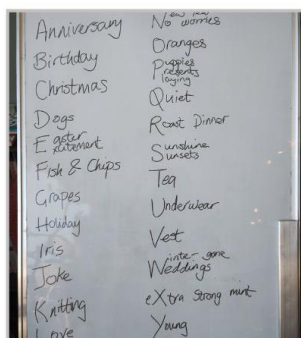 Anniversary
Birthday
Christmas
Dogs
Easter
Excitement
Fish & Chips
Grapes
Holiday
Iris
Joke
Knitting
Love
No worries
Oranges
Puppies
Presents
Playing
Quiet
Roast Dinner
Sunshine
Sunsets
Tea
Underwear
Vest
Winter gone
Weddings
eXtra strong mint
Young